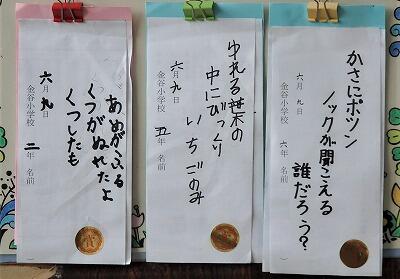 かさにポツン
ノックが聞こえる
誰だろう？
六月九日
金谷小学校 六年 名前
ゆれる葉の
中にびっくり
いちごのみ
六月九日
金谷小学校 五年 名前
あめがふる
くつがぬれたよ
くつしたも
六月九日
金谷小学校 二年 名前